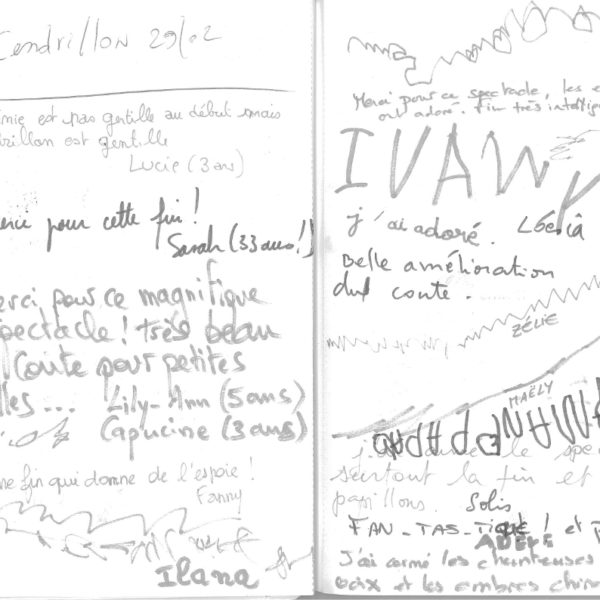 Cendrillon 29/02
est pas gentille au début mais
est gentille
Lucie (3 ans)
pour cette fin !
Sarah (33 ans !)
erci pour ce magnifique
spectacle ! très beau
Conte pour petites
lles ... Lily-Ann (5 ans)
Capucine (3 ans)
ne fin qui donne de l'espoie !
Fanny
Ilana
Merci pour ce spectacle, les e
ont adoré. Fin très intellige
IVAN
j'ai adoré.
Belle amélioration
du conte.
ZÉLIE
MAËLY
MAMAN PAPA
le spe
surtout la fin et
papillons. Solis
FAN_TAS_TIQUE ! et p
ADÈLE
J'ai aimé les chanteuses
voix et les ombres chin